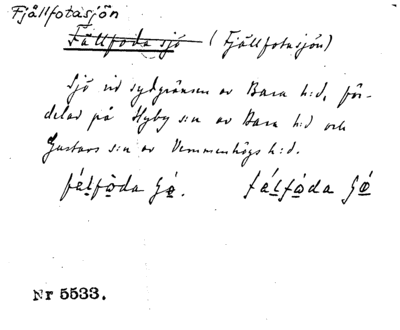 Fjällfotasjön
Fällfoda sjö (Fjällfotasjön)
Sjö vid sydgränsen av Bara h:d, för-
delar på Hyby s:n av Bara h:d och
Gustavs s:n av Vemmenhögs h:d.
fálfòda
fálfòda
Nr 5533.